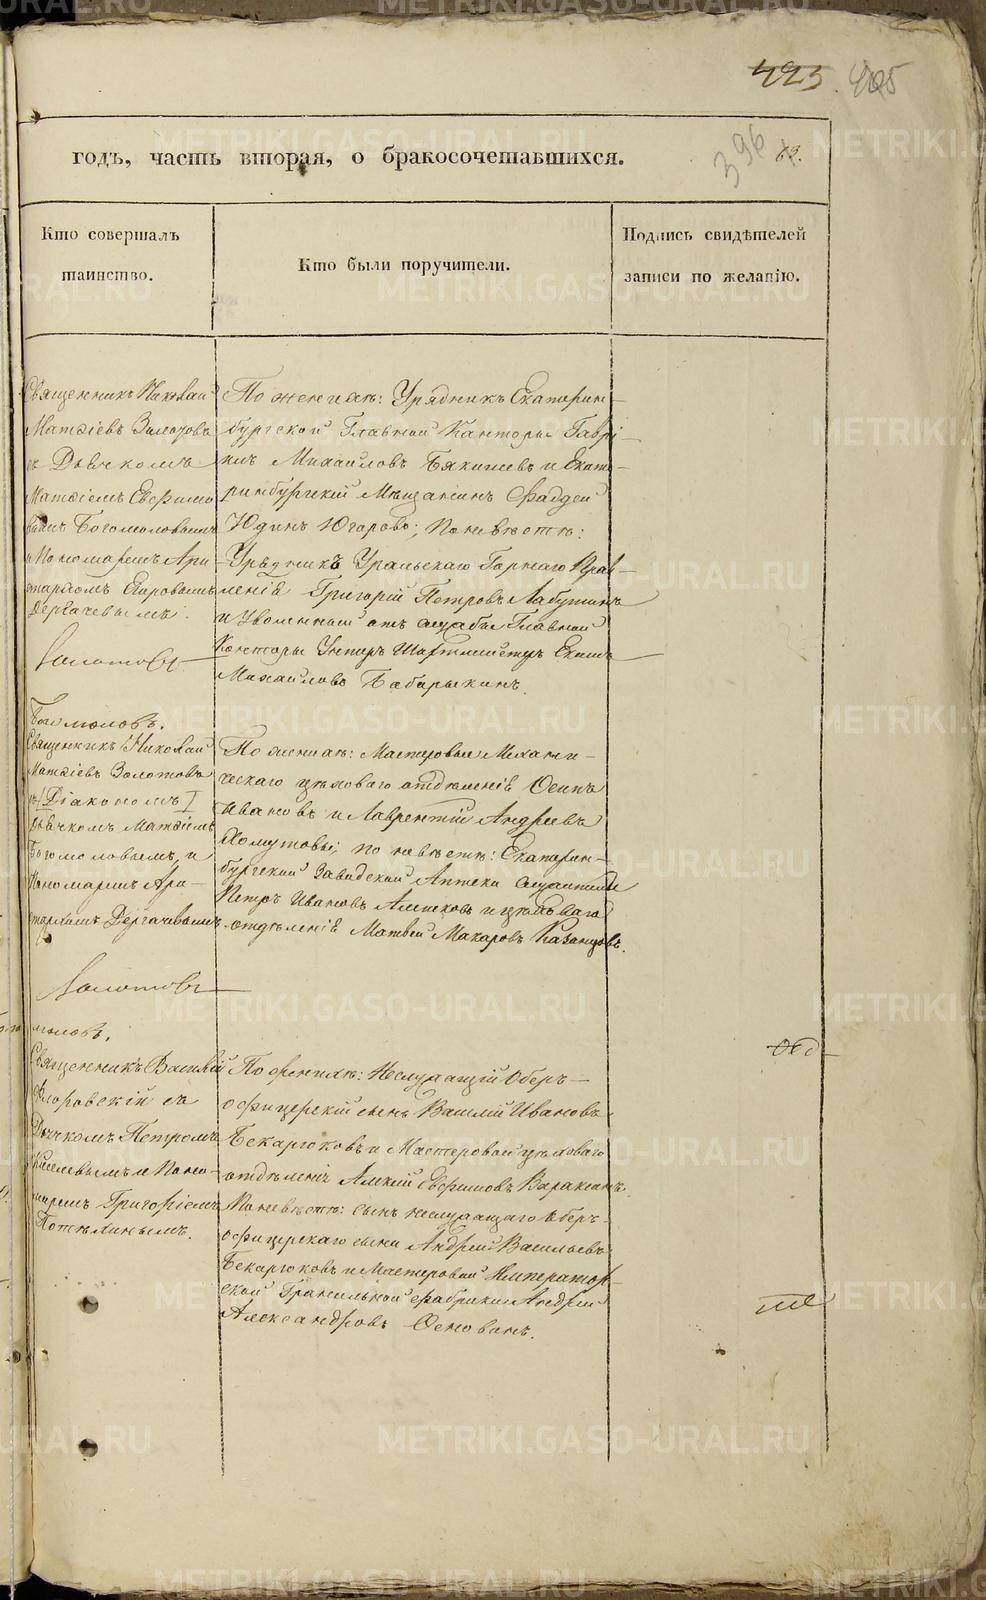 423. 405
годъ, часть вторая, о бракосочетавшихся.
396 63.
Кто совершалъ
таинство.
Кто были поручители.
Подпись свидѣтелей
записи по желанію.
Священникъ Николай
Матѳіевъ Золотовъ
съ Дьячкомъ
Матѳіемъ Евфимо
вымъ Богомоловымъ
и Пономаремъ Ари
стархомъ Егоровымъ
Дергачевымъ.
По женихѣ: Урядникъ Екатерин-
бургской Главной Канторы Гаврі-
илъ Михайловъ Бякишевъ и Екате-
ринбургскій Мѣщанинъ Фаддей
Юдинъ Югаровъ; по невѣстѣ:
Урядникъ Уральскаго Горнаго Прав-
ленія Григорій Петровъ Лабутинъ
и Уволенный отъ службы Главной
Конторы Унтеръ Шихтмейстеръ
Михайловъ Бабарыкинъ.
Золотовъ
Богомоловъ.
Священникъ Николай
Матѳіевъ Золотовъ
съ [Діакономъ]
Дьячкомъ Матѳіемъ
Богомоловымъ, и
Пономаремъ Ари-
стархомъ Дергачевымъ.
По женихѣ: Мастеровые Механи-
ческаго цѣховаго отдѣленія Осипъ
Ивановъ и Лаврентій Андреевъ
Хомутовы; по невѣстѣ: Екатерин-
бургской Заводской Аптеки служители
Петръ Ивановъ и цѣховаго
отдѣленія Матвей Макаровъ Казанцовъ.
Золотовъ
моловъ.
Священникъ Василій
Флоровскій съ
Дьячкомъ Петромъ
Киселевымъ и Поно-
маремъ Григоріемъ
Потѣхинымъ.
По женихѣ: Неслужащій Оберъ-
офицерскій сынъ Василій Ивановъ
Бекарюковъ и Мастеровой цѣховаго
отдѣленія Алексій Евфимовъ Варакинъ.
По невѣстѣ: сынъ неслужащаго Оберъ-
офицерскаго сына Андрей Васильевъ
Бекарюковъ и Мастеровой Император-
ской Гранильной фабрики Андрей
Александровъ
METRIKI.GASO-URAL.RU